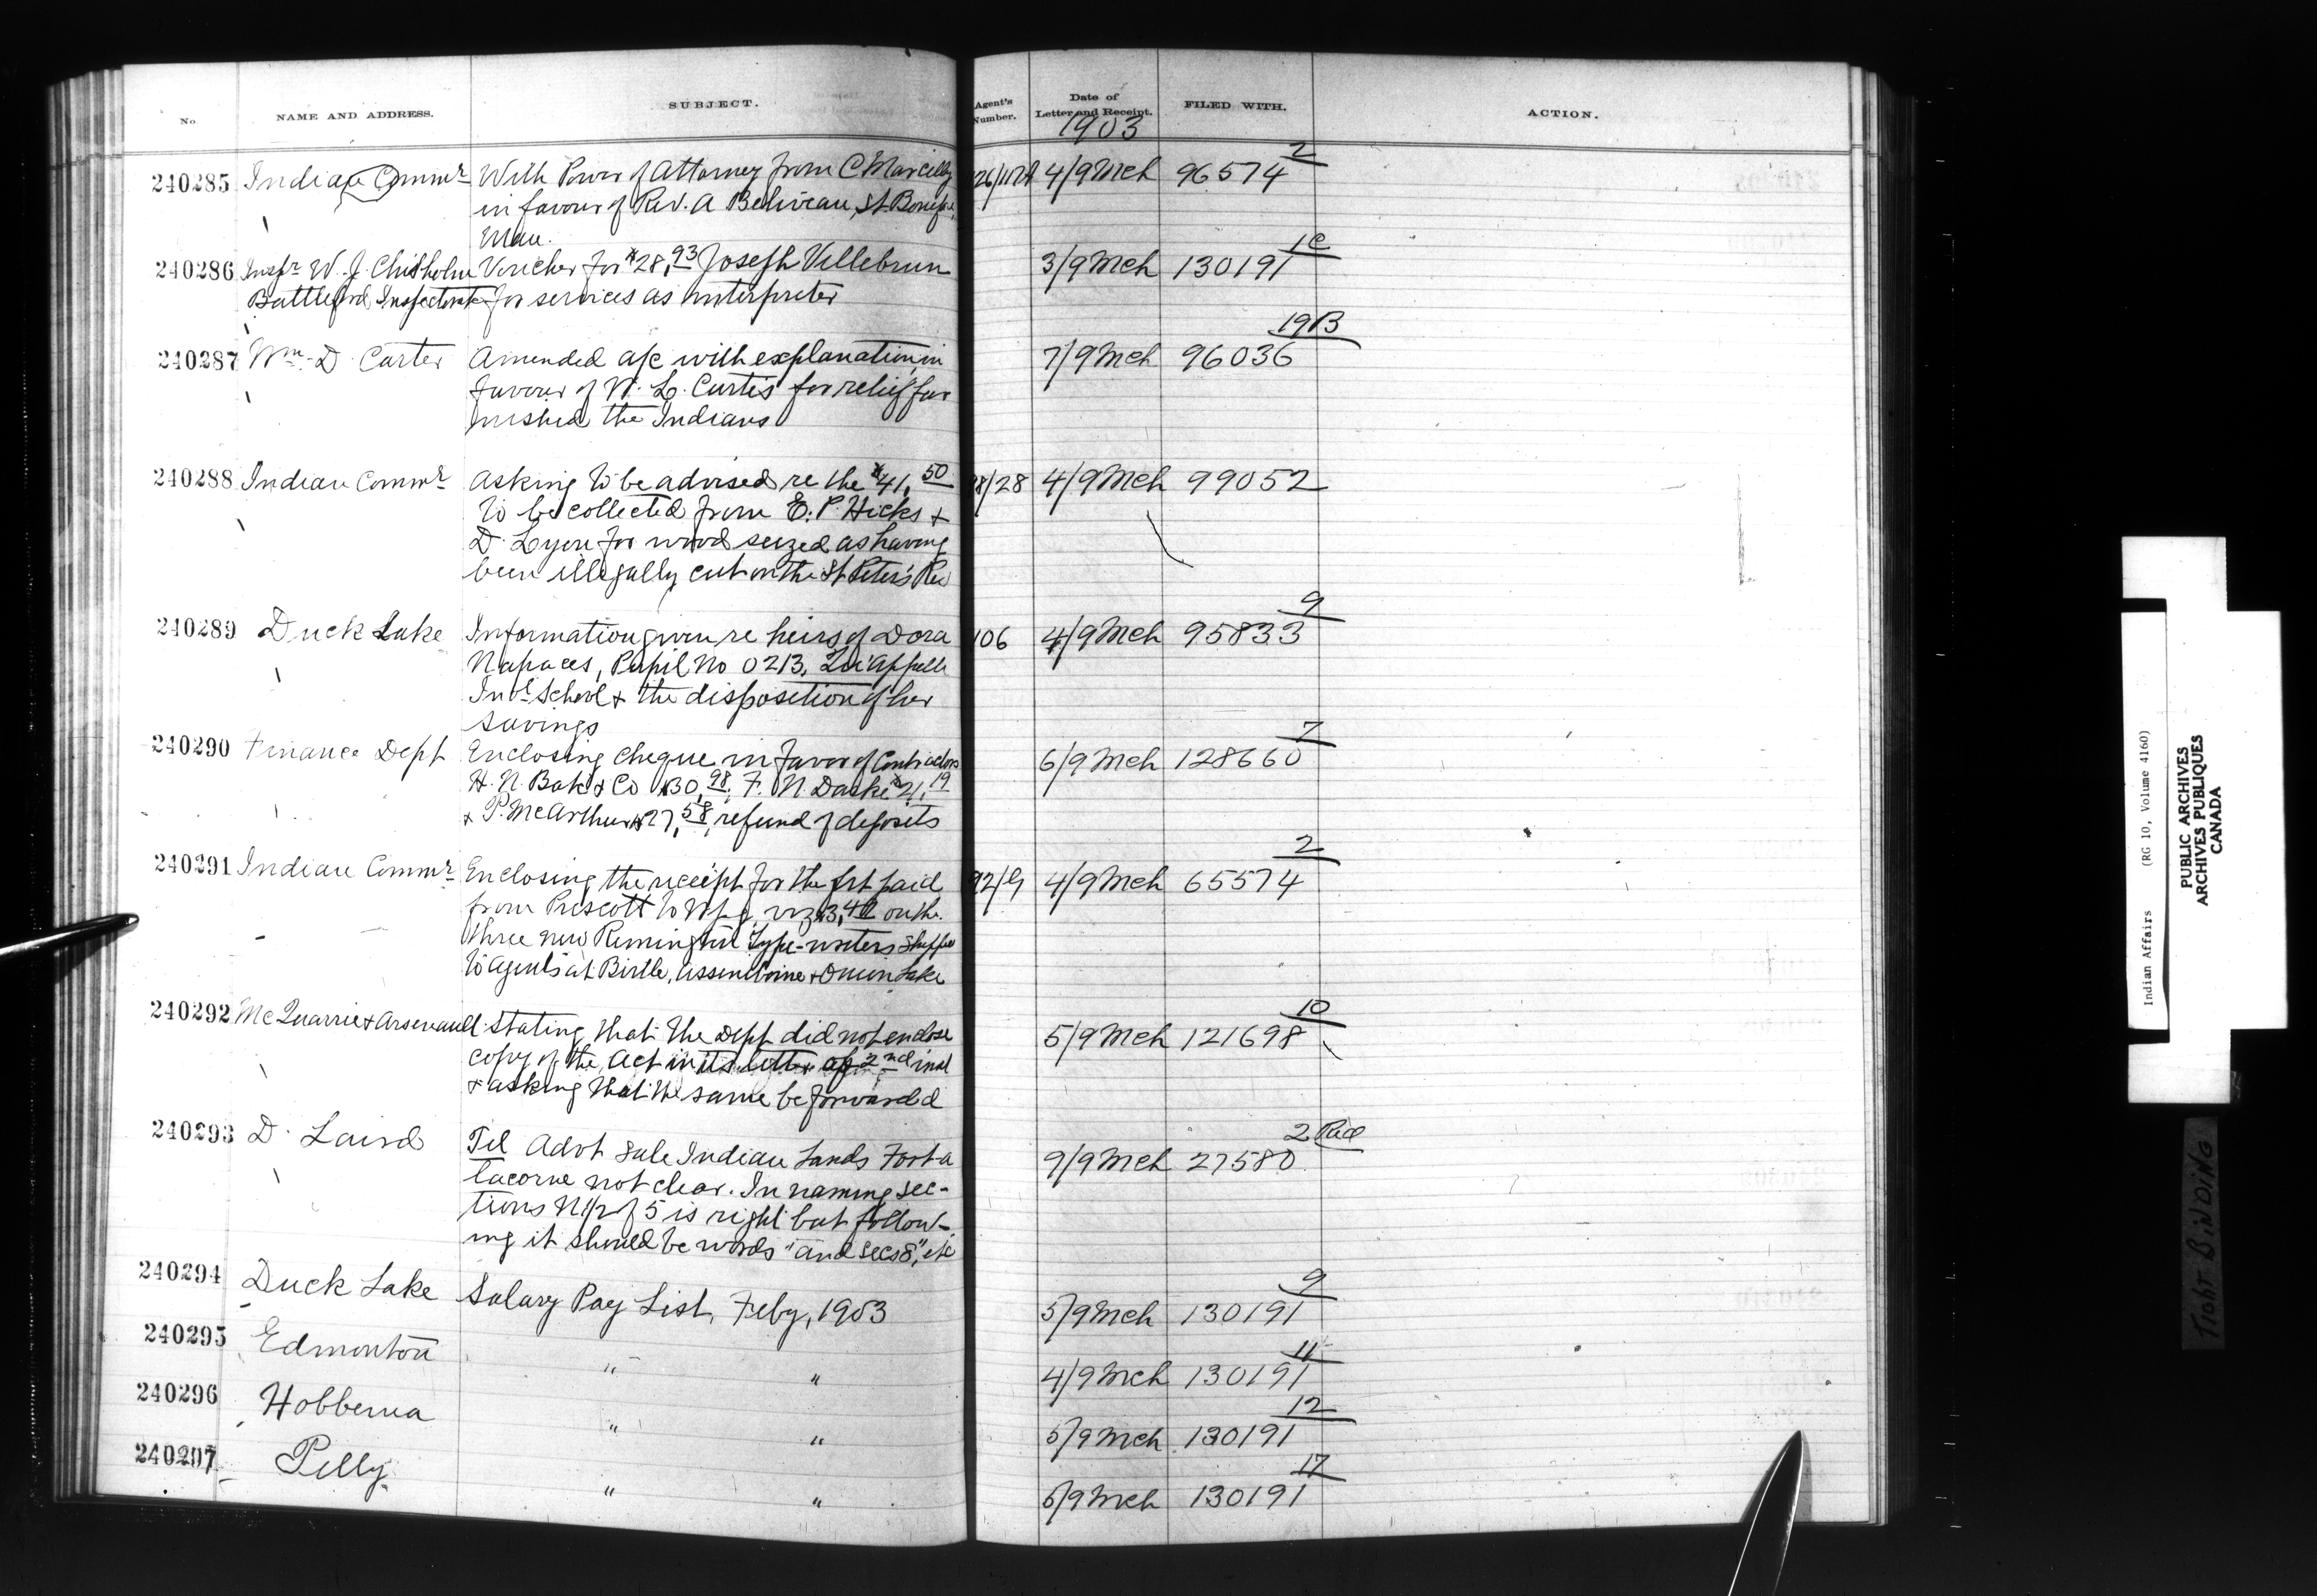 No. NAME AND ADDRESS. SUBJECT. Agent's Number. Date of Letter and Receipt. FILED WITH. ACTION.
1903
240285 Indian Commr With Power of Attorney from C Marcilly 4/9 Mch 96574 2
in favour of Rev. A Beliveau, St. Boniface
Man.
240286 Inspr W. J. Chisholm Voucher for $28.93 Joseph Villebrun 3/9 Mch 130191 1C
Battleford Inspectorate for services as interpreter
240287 Wm. D. Carter Amended a/c with explanation, in 7/9 Mch 96036 19B
favour of W. L. Curtis for relief fur
nished the Indians
240288 Indian Commr Asking to be advised re the $41.50 /28 4/9 Mch 99052
to be collected from E. P. Hicks &
D. Lyon for wood seized as having
been illegally cut on the St Peter's Res
240289 Duck Lake Information given re heirs of Dora 106 4/9 Mch 95833 9
Napaces, Pupil No 0213, Qu'Appelle
Indl School & the disposition of her
savings
240290 Finance Dept Enclosing cheque in favor of Contractors 6/9 Mch 128660 7
H. N. & Co 30.98, F. N. Darke $21.19
& P. McArthur $27.58, refund of deposits
240291 Indian Commr Enclosing the receipt for the frt paid 4/9 Mch 65574 2
from Prescott to Wpg, viz $3.40 on the
three new Remington Type-writers shipped
to Agents at Birtle, Assiniboine & Onion Lake
240292 McQuarrie & Arsenault Stating that the Dept did not enclose 5/9 Mch 121698 10
copy of the Act in its letter of 2nd inst
& asking that the same be forwarded
240293 D. Laird Tel Advt sale Indian Lands Fort a 9/9 Mch 27580 2
lacorne not clear. In naming sec-
tions N 1/2 of 5 is right but follow-
ing it should be words "and secs 8", etc
240294 Duck Lake Salary Pay List, Feby, 1903 5/9 Mch 130191 9
240295 Edmonton " " 4/9 Mch 130191 11
240296 Hobbema " " 5/9 Mch 130191 12
240297 Pelly " " 5/9 Mch 130191 17
Indian Affairs (RG 10, Volume 4160)
PUBLIC ARCHIVES
ARCHIVES PUBLIQUES
CANADA
TIGHT BINDING